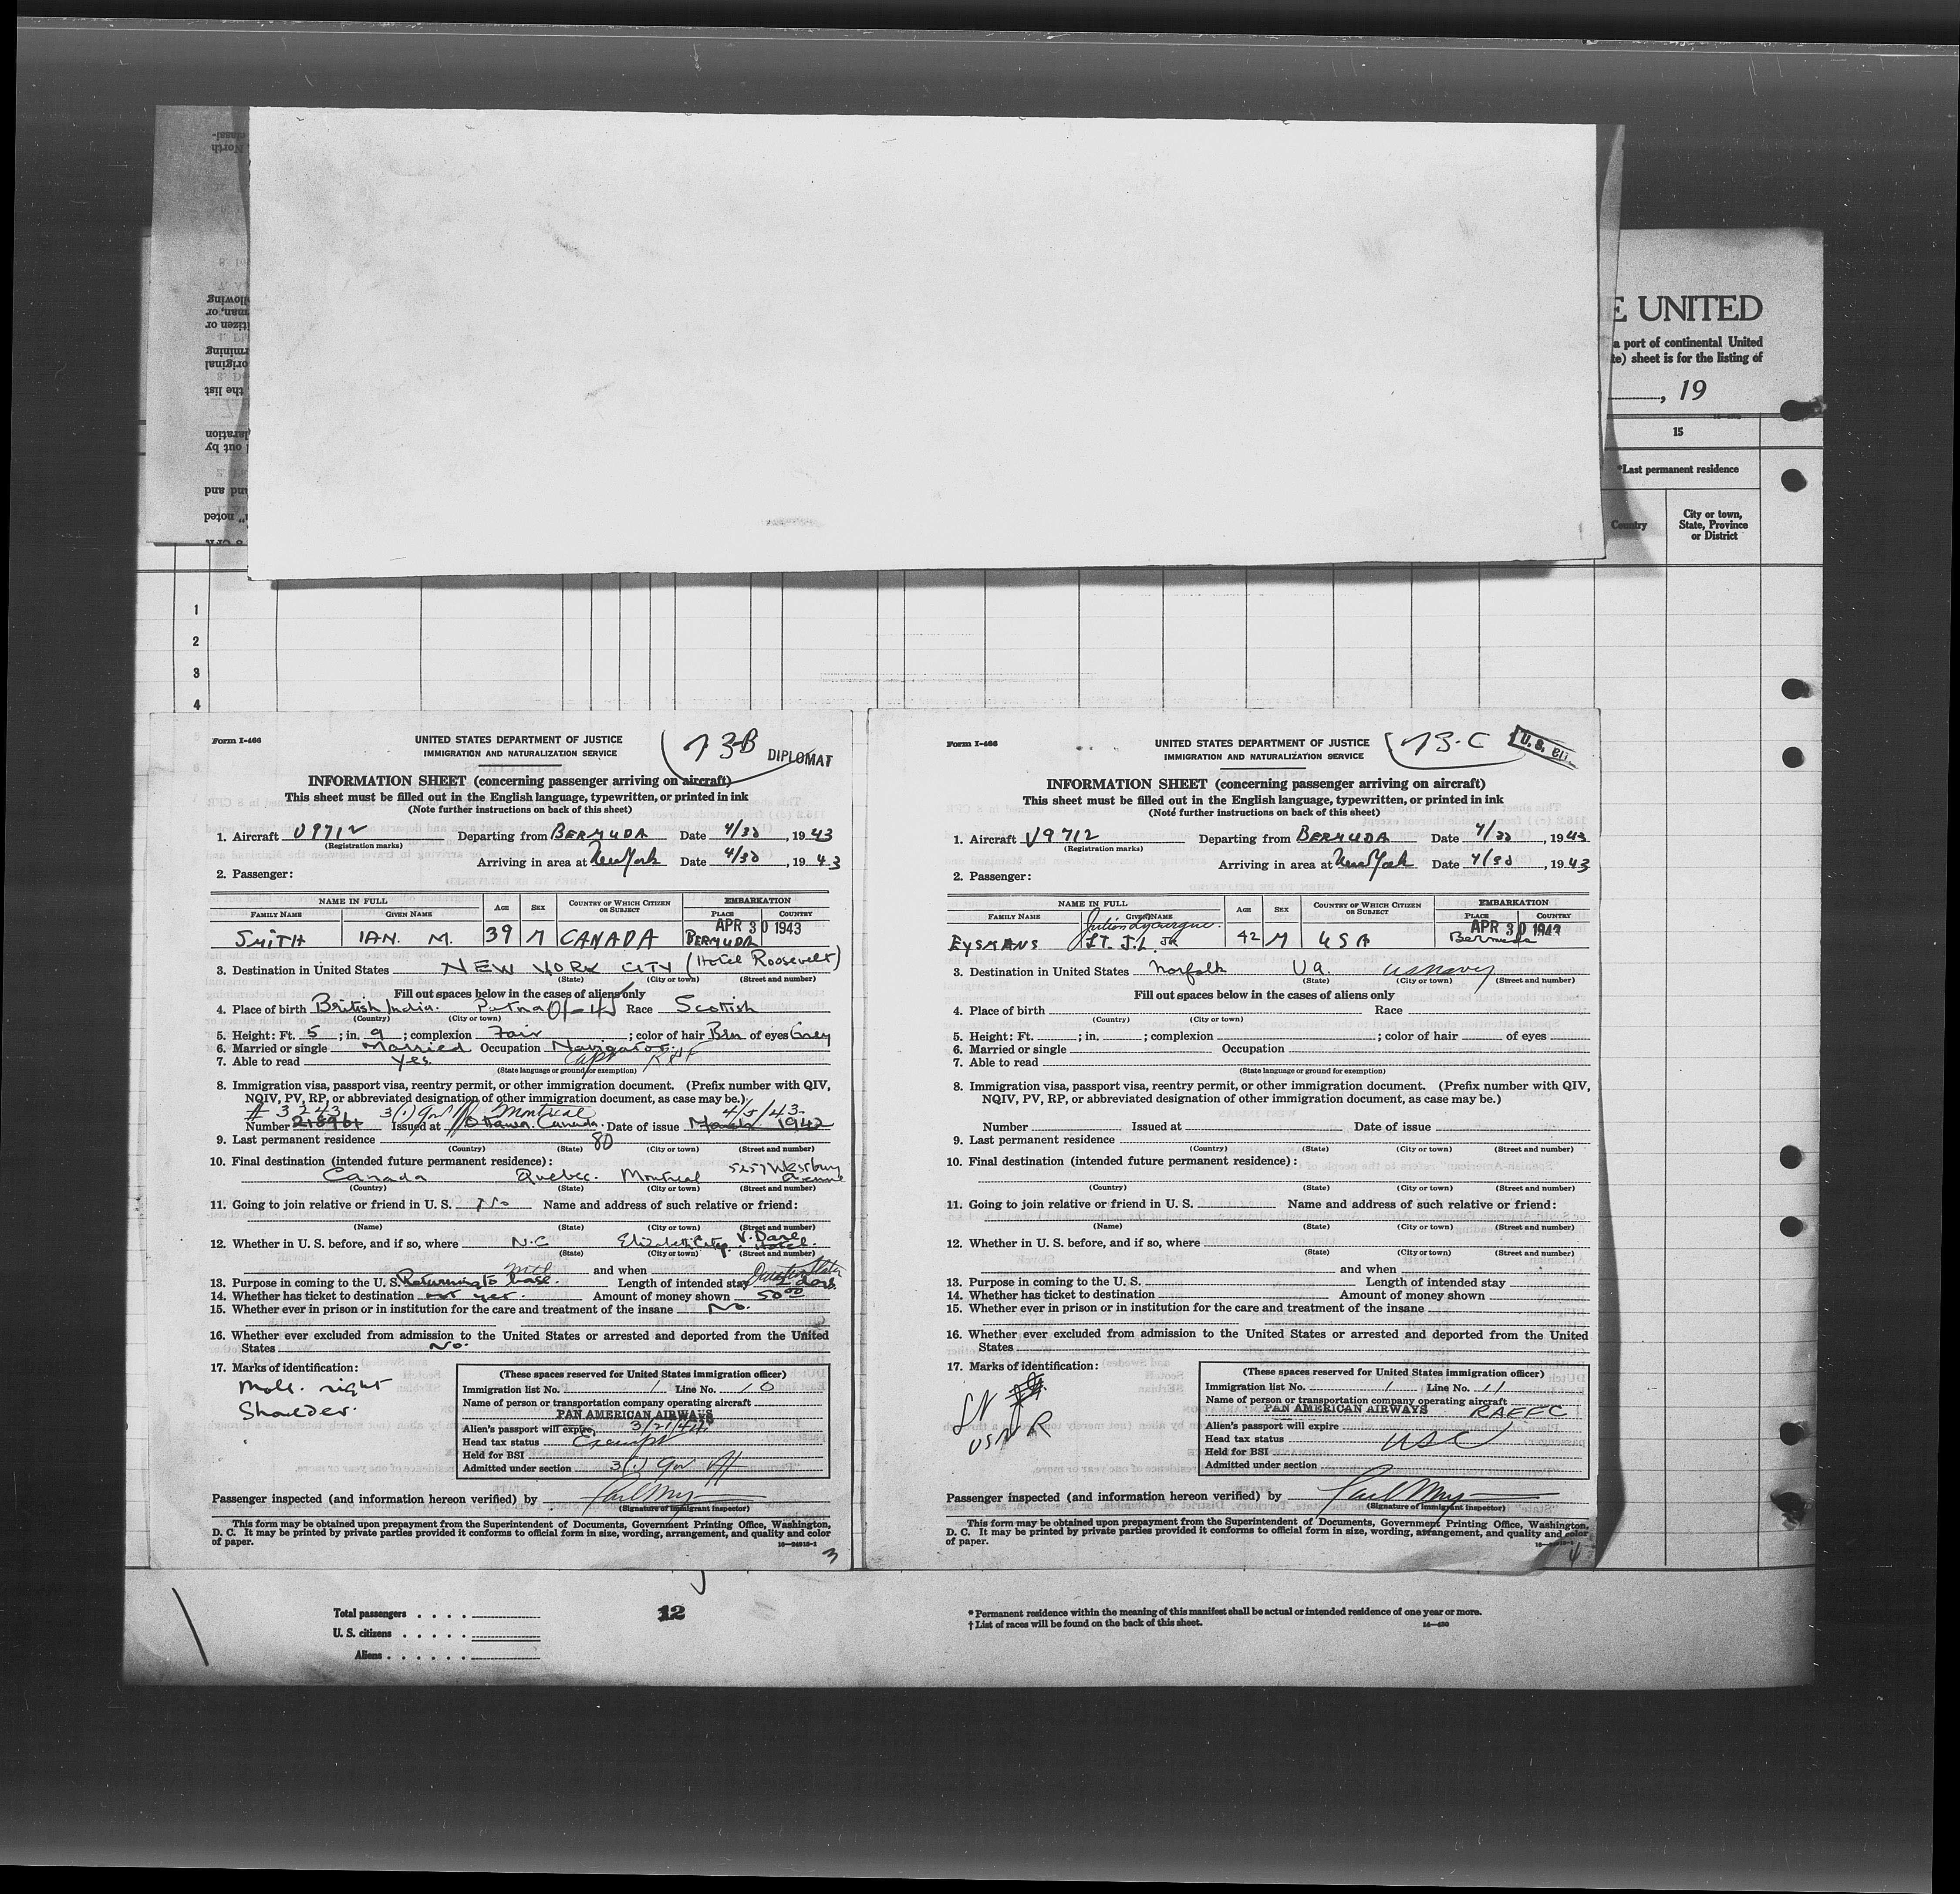 E UNITED
a port of continental United
te) sheet is for the listing of
, 19
15
*Last permanent residence
Country
City or town,
State, Province
or District
1
2
3
4
Form I-466
UNITED STATES DEPARTMENT OF JUSTICE
IMMIGRATION AND NATURALIZATION SERVICE
73-B
DIPLOMAT
INFORMATION SHEET (concerning passenger arriving on aircraft)
This sheet must be filled out in the English language, typewritten, or printed in ink
(Note further instructions on back of this sheet)
1. Aircraft V9712 Departing from BERMUDA Date 4/30, 1943
(Registration marks)
Arriving in area at New York Date 4/30, 1943
2. Passenger:
NAME IN FULL
AGE
SEX
COUNTRY OF WHICH CITIZEN OR SUBJECT
EMBARKATION
FAMILY NAME
GIVEN NAME
PLACE
COUNTRY
APR 30 1943
SMITH IAN. M. 39 M CANADA BERMUDA
3. Destination in United States NEW YORK CITY (Hotel Roosevelt)
(State) (City or town) (Street and number)
Fill out spaces below in the cases of aliens only
4. Place of birth British India. Patna Race Scottish
(Country) (City or town)
5. Height: Ft. 5; in. 9; complexion Fair; color of hair Brn of eyes Grey
6. Married or single Married Occupation Navigator.
7. Able to read Yes. Capt
(State language or ground for exemption)
8. Immigration visa, passport visa, reentry permit, or other immigration document. (Prefix number with QIV,
NQIV, PV, RP, or abbreviated designation of other immigration document, as case may be.)
# 3243 3(1) Gov Montreal 4/5/43
Number Issued at Ottawa. Canada. Date of issue March 1942
9. Last permanent residence
80
(Country) (State) (City or town) (Street and number)
10. Final destination (intended future permanent residence):
Canada Quebec. Montreal 5257 Westbury Avenue
(Country) (State) (City or town) (Street and number)
11. Going to join relative or friend in U. S. No Name and address of such relative or friend:
(Name) (State) (City or town) (Street and number)
12. Whether in U. S. before, and if so, where N.C Elizabeth City. V. Dare Hotel.
(State) (City or town) (Street and number)
and when
13. Purpose in coming to the U. S. Returning to base. Length of intended stay 2 days.
14. Whether has ticket to destination not yet. Amount of money shown 50 00
15. Whether ever in prison or in institution for the care and treatment of the insane No.
16. Whether ever excluded from admission to the United States or arrested and deported from the United
States No.
17. Marks of identification:
Mole. right
Shoulder.
(These spaces reserved for United States immigration officer)
Immigration list No. 1 Line No. 10
Name of person or transportation company operating aircraft
PAN AMERICAN AIRWAYS
Alien's passport will expire 3/21/44
Head tax status Exempt
Held for BSI
Admitted under section 3(1) Gov
Passenger inspected (and information hereon verified) by
(Signature of immigrant inspector)
This form may be obtained upon prepayment from the Superintendent of Documents, Government Printing Office, Washington,
D. C. It may be printed by private parties provided it conforms to official form in size, wording, arrangement, and quality and color
of paper.
16—24915-1
3
Form I-466
UNITED STATES DEPARTMENT OF JUSTICE
IMMIGRATION AND NATURALIZATION SERVICE
73-C
INFORMATION SHEET (concerning passenger arriving on aircraft)
This sheet must be filled out in the English language, typewritten, or printed in ink
(Note further instructions on back of this sheet)
1. Aircraft V9712 Departing from BERMUDA Date 4/30, 1943
(Registration marks)
Arriving in area at New York Date 4/30, 1943
2. Passenger:
NAME IN FULL
AGE
SEX
COUNTRY OF WHICH CITIZEN OR SUBJECT
EMBARKATION
FAMILY NAME
GIVEN NAME
PLACE
COUNTRY
Julien Lycurgue.
APR 30 1943
EYSMANS LT. J.L. JR 42 M USA Bermuda
3. Destination in United States Norfolk Va. US Navy
(State) (City or town) (Street and number)
Fill out spaces below in the cases of aliens only
4. Place of birth Race
(Country) (City or town)
5. Height: Ft. ; in. ; complexion ; color of hair of eyes
6. Married or single Occupation
7. Able to read
(State language or ground for exemption)
8. Immigration visa, passport visa, reentry permit, or other immigration document. (Prefix number with QIV,
NQIV, PV, RP, or abbreviated designation of other immigration document, as case may be.)
Number Issued at Date of issue
9. Last permanent residence
(Country) (State) (City or town) (Street and number)
10. Final destination (intended future permanent residence):
(Country) (State) (City or town) (Street and number)
11. Going to join relative or friend in U. S. Name and address of such relative or friend:
(Name) (State) (City or town) (Street and number)
12. Whether in U. S. before, and if so, where
(State) (City or town) (Street and number)
and when
13. Purpose in coming to the U. S. Length of intended stay
14. Whether has ticket to destination Amount of money shown
15. Whether ever in prison or in institution for the care and treatment of the insane
16. Whether ever excluded from admission to the United States or arrested and deported from the United
States
17. Marks of identification:
USNR
(These spaces reserved for United States immigration officer)
Immigration list No. 1 Line No. 11
Name of person or transportation company operating aircraft
PAN AMERICAN AIRWAYS
Alien's passport will expire
Head tax status USC
Held for BSI
Admitted under section
Passenger inspected (and information hereon verified) by
(Signature of immigrant inspector)
This form may be obtained upon prepayment from the Superintendent of Documents, Government Printing Office, Washington,
D. C. It may be printed by private parties provided it conforms to official form in size, wording, arrangement, and quality and color
of paper.
4
Total passengers
U. S. citizens
Aliens
12
* Permanent residence within the meaning of this manifest shall be actual or intended residence of one year or more.
† List of races will be found on the back of this sheet.